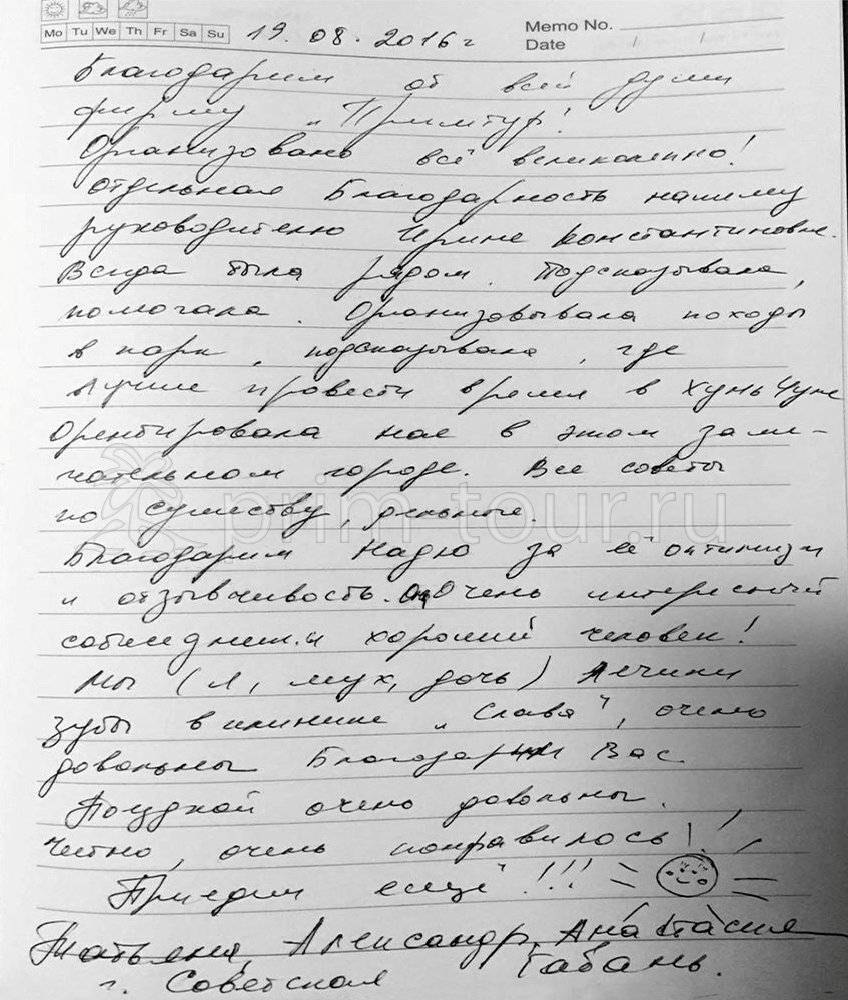 Mo Tu We Th Fr Sa Su
19.08.2016г
Memo No.
Date / /
Благодарим от всей души
фирму "Примтур"!
Организовано всё великолепно!
Отдельная Благодарность нашему
руководителю Ирине Константиновне.
Всегда была рядом. Подсказывала,
помогала. Организовывала походы
в парк, подсказывала, где
лучше провести время в Хуньчуне
Орентировала нас в этом заме-
чательном городе. Все советы
по существу, дельные.
prim-tour.ru
Благодарим Надю за её оптимизм
и отзывчивость. Очень интересный
собеседник и хороший человек!
Мы (я, муж, дочь) лечили
зубы в клинике "Слава", очень
довольны Благодарим Вас.
Поездкой очень довольны.
Честно, очень понравилось!
Приедем ещё!!!
Татьяна, Александр, Анастасия
Табань.
г. Советская